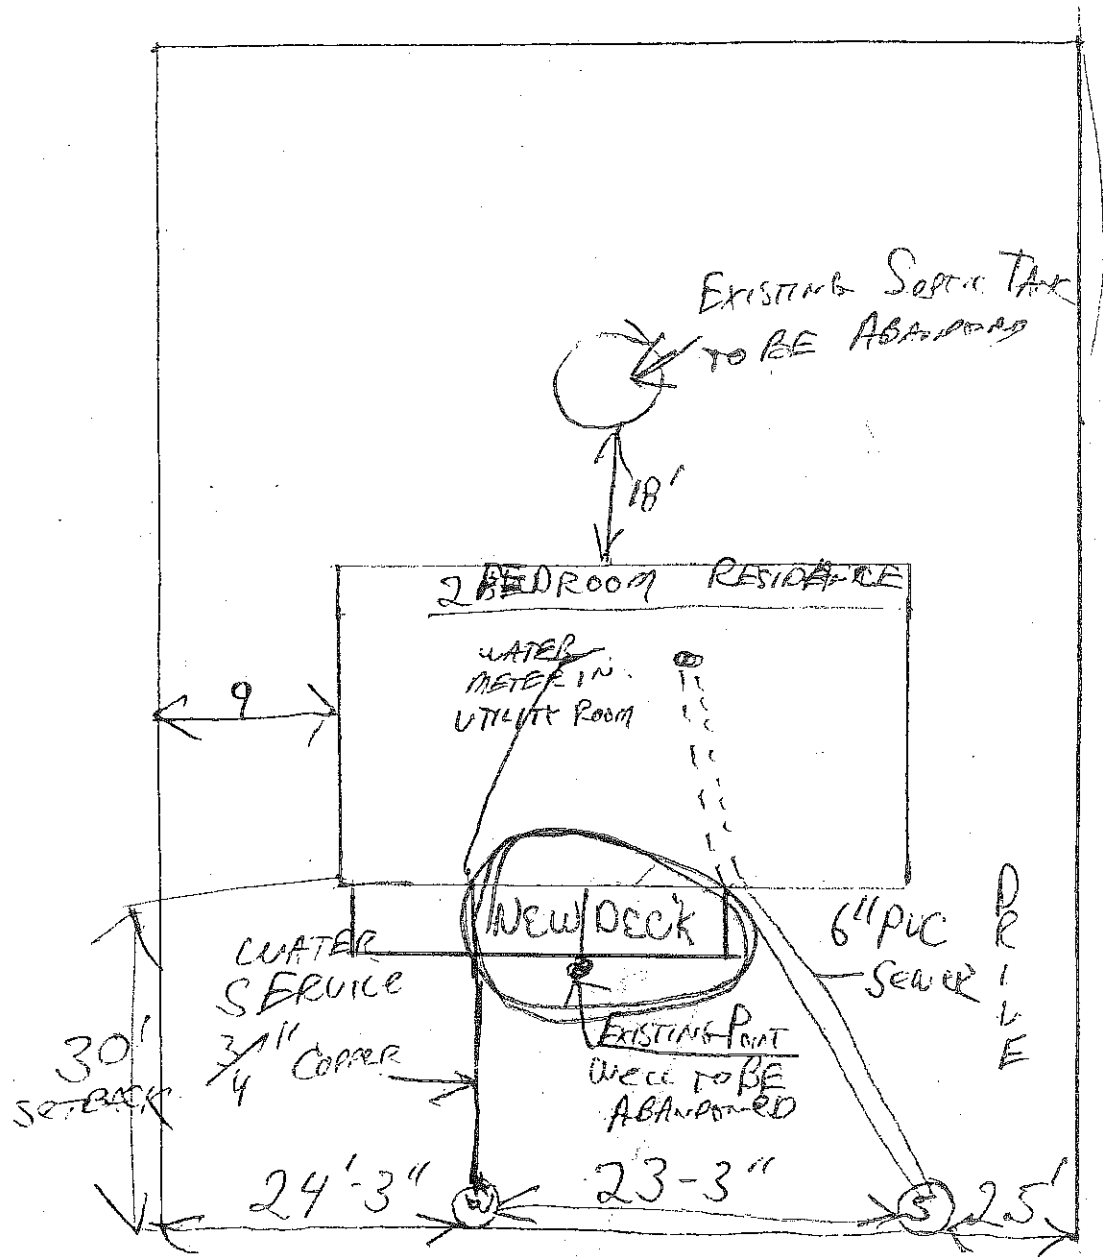 EXISTING SEPTIC TANK
TO BE ABANDOND
18'
2 BEDROOM RESIDENCE
WATER
METER IN
UTILITY ROOM
9
NEW DECK
WATER
SERVICE
3/4" COPPER
6" PVC
SEWER
DRIVE
30'
SETBACK
EXISTING POINT
WELL TO BE
ABANDONED
24'-3"
W
23-3"
S
25'